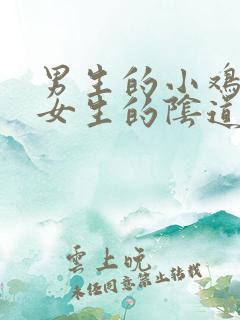 男生的小鸡
女生的陰道
雲上晚
未经同意禁止转载